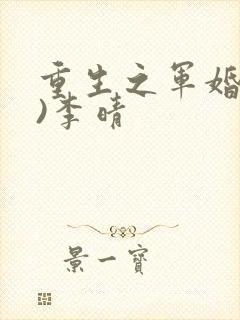 重生之军婚
)李晴
景一宝